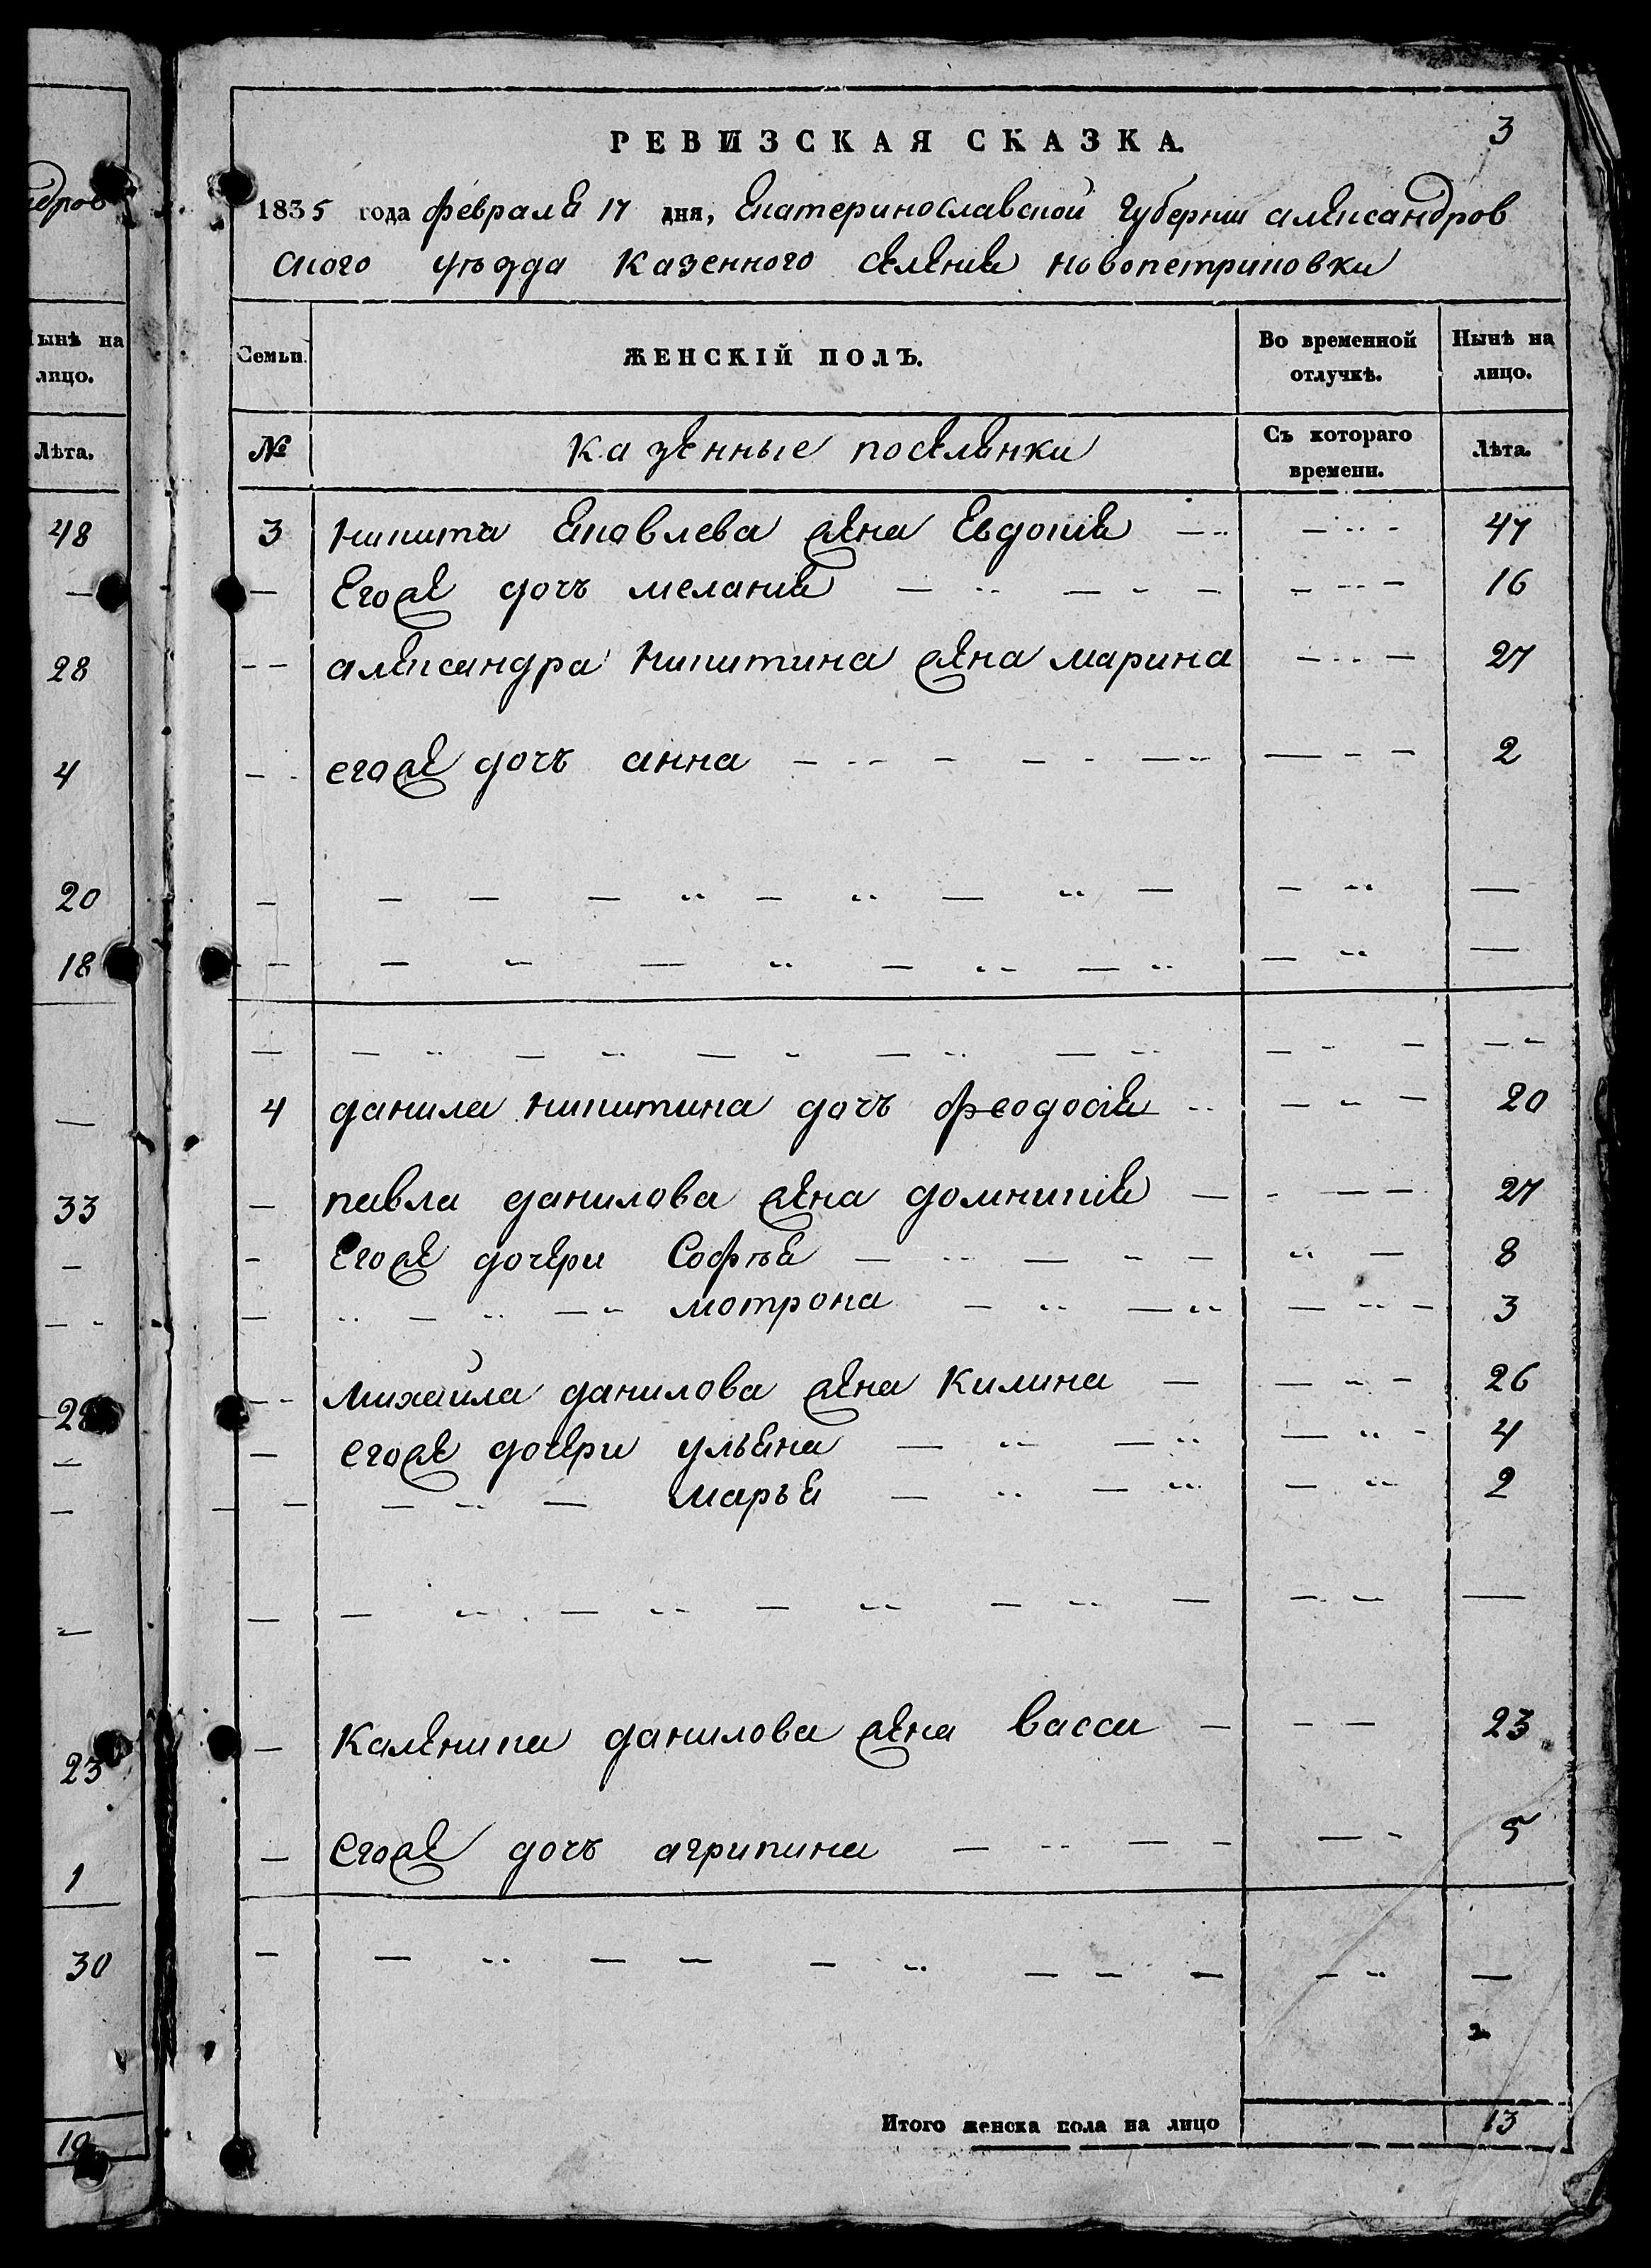 едров
Нынѣ на
лицо.
Лѣта.
48
28
4
20
18
33
23
1
30
РЕВИЗСКАЯ СКАЗКА.
3
1835 года февраля 17 дня, Екатеринославской Губернии александров
ского уѣзда Казенного селения новопетриковки
Семьи.
ЖЕНСКІЙ ПОЛЪ.
Во временной
отлучкѣ.
Нынѣ на
лицо.
№
Казенные поселянки
Съ котораго
времени.
Лѣта.
3 никита яковлева жена Евдокия 47
Егоже дочъ мелания 16
александра никитина жена марина 27
егоже дочъ анна 2
4 данила никитина дочъ феодосія 20
павла данилова жена домникія 27
Егоже дочери Софья 8
мотрона 3
михайла данилова жена Килина 26
егоже дочери ульяна 4
марья 2
Каленика данилова жена васса 23
егоже дочъ агрипина 5
Итого женска пола на лицо 13